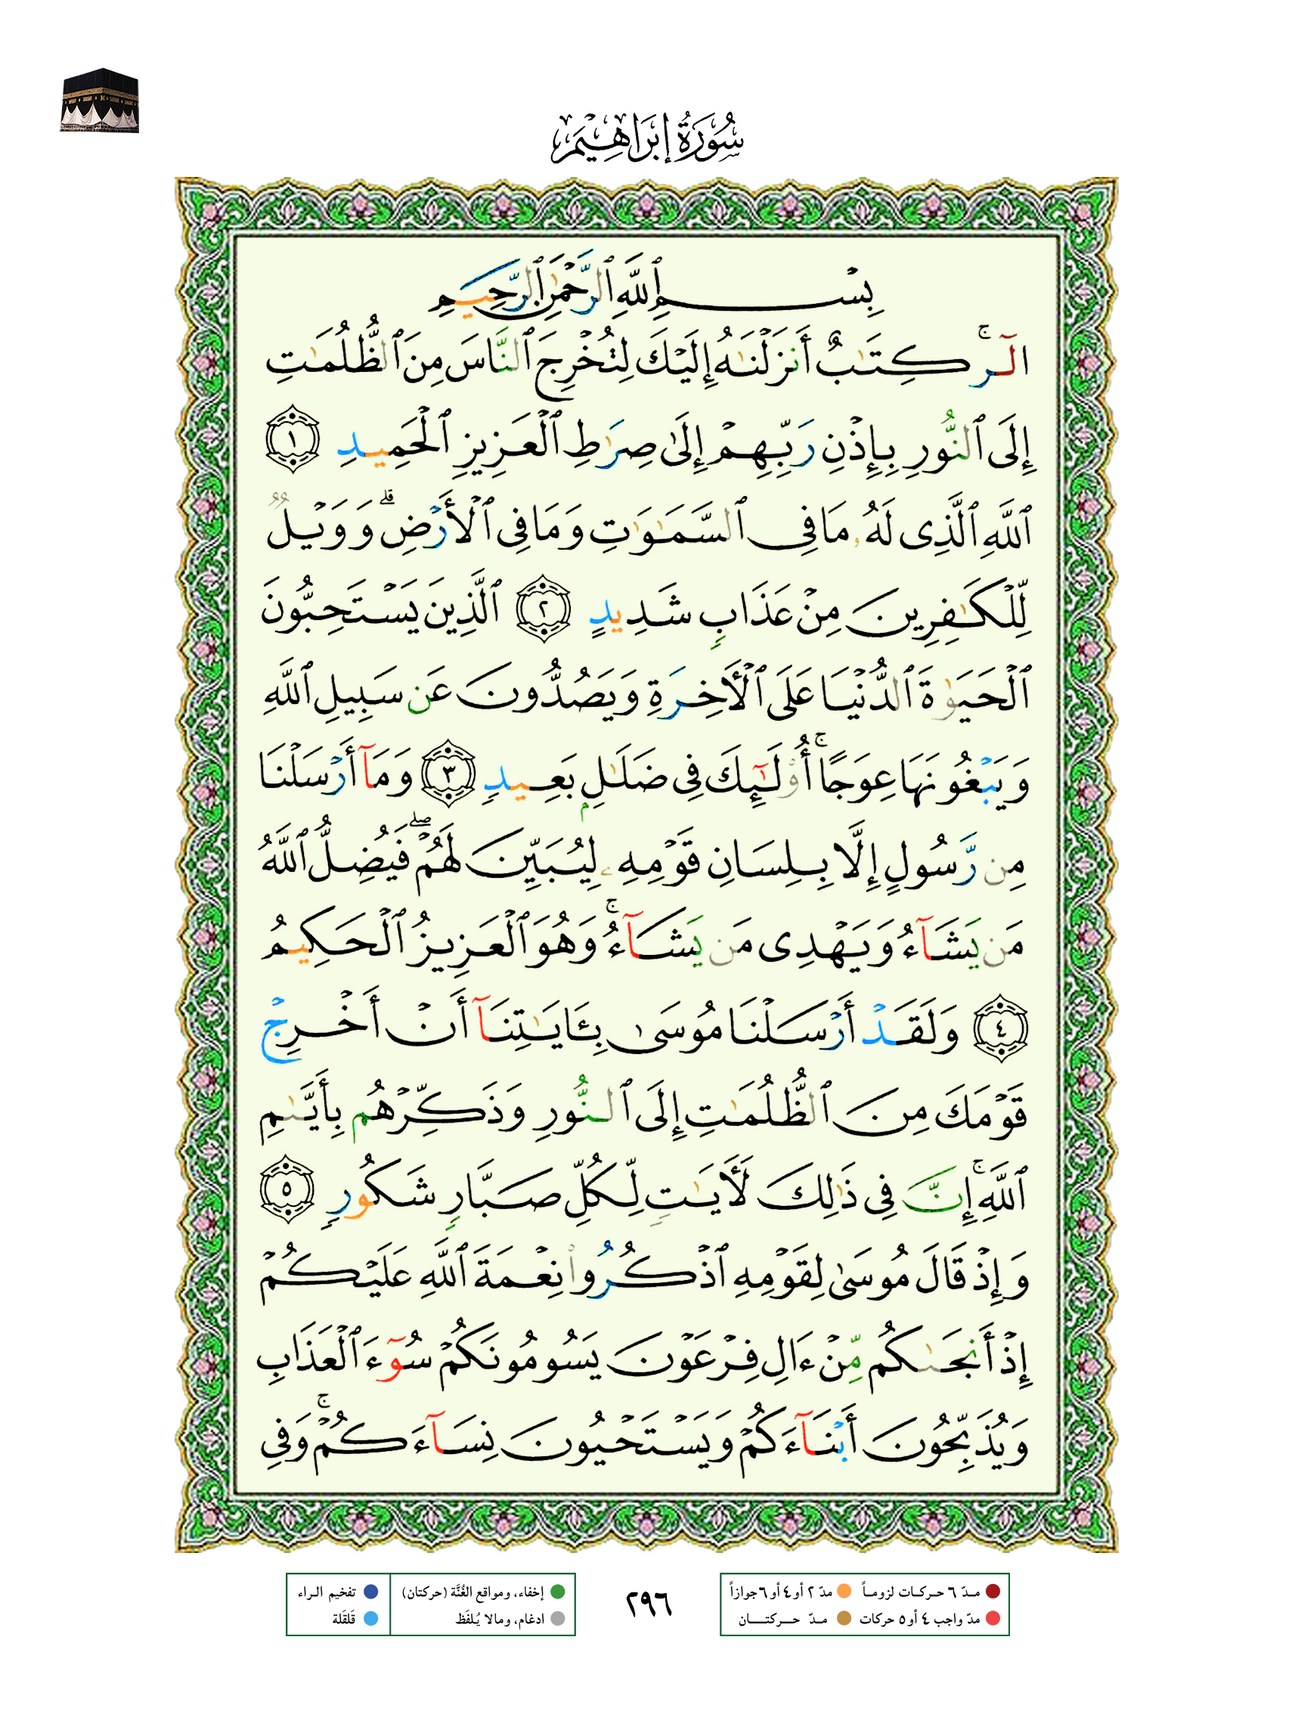 سُورَةُ إِبْرَاهِيمَ
بِسْمِ ٱللَّهِ ٱلرَّحْمَٰنِ ٱلرَّحِيمِ
الٓر ۚ كِتَٰبٌ أَنزَلْنَٰهُ إِلَيْكَ لِتُخْرِجَ ٱلنَّاسَ مِنَ ٱلظُّلُمَٰتِ
إِلَى ٱلنُّورِ بِإِذْنِ رَبِّهِمْ إِلَىٰ صِرَٰطِ ٱلْعَزِيزِ ٱلْحَمِيدِ ١
ٱللَّهِ ٱلَّذِى لَهُۥ مَا فِى ٱلسَّمَٰوَٰتِ وَمَا فِى ٱلْأَرْضِ ۗ وَوَيْلٌ
لِّلْكَٰفِرِينَ مِنْ عَذَابٍ شَدِيدٍ ٢ ٱلَّذِينَ يَسْتَحِبُّونَ
ٱلْحَيَوٰةَ ٱلدُّنْيَا عَلَى ٱلْأَخِرَةِ وَيَصُدُّونَ عَن سَبِيلِ ٱللَّهِ
وَيَبْغُونَهَا عِوَجًا ۚ أُو۟لَٰٓئِكَ فِى ضَلَٰلٍۭ بَعِيدٍ ٣ وَمَآ أَرْسَلْنَا
مِن رَّسُولٍ إِلَّا بِلِسَانِ قَوْمِهِۦ لِيُبَيِّنَ لَهُمْ ۖ فَيُضِلُّ ٱللَّهُ
مَن يَشَآءُ وَيَهْدِى مَن يَشَآءُ ۚ وَهُوَ ٱلْعَزِيزُ ٱلْحَكِيمُ
٤ وَلَقَدْ أَرْسَلْنَا مُوسَىٰ بِـَٔايَٰتِنَآ أَنْ أَخْرِجْ
قَوْمَكَ مِنَ ٱلظُّلُمَٰتِ إِلَى ٱلنُّورِ وَذَكِّرْهُم بِأَيَّىٰمِ
ٱللَّهِ ۚ إِنَّ فِى ذَٰلِكَ لَأَيَٰتٍ لِّكُلِّ صَبَّارٍ شَكُورٍ ٥
وَإِذْ قَالَ مُوسَىٰ لِقَوْمِهِ ٱذْكُرُوا۟ نِعْمَةَ ٱللَّهِ عَلَيْكُمْ
إِذْ أَنجَىٰكُم مِّنْ ءَالِ فِرْعَوْنَ يَسُومُونَكُمْ سُوٓءَ ٱلْعَذَابِ
وَيُذَبِّحُونَ أَبْنَآءَكُمْ وَيَسْتَحْيُونَ نِسَآءَكُمْ ۚ وَفِى
مدّ ٦ حركات لزوماً مدّ ٢ أو ٤ أو ٦ جوازاً
مدّ واجب ٤ أو ٥ حركات مدّ حركتان
٢٩٦
إخفاء، ومواقع الغُنَّة (حركتان) تفخيم الراء
ادغام، ومالا يُلفَظ قلقلة